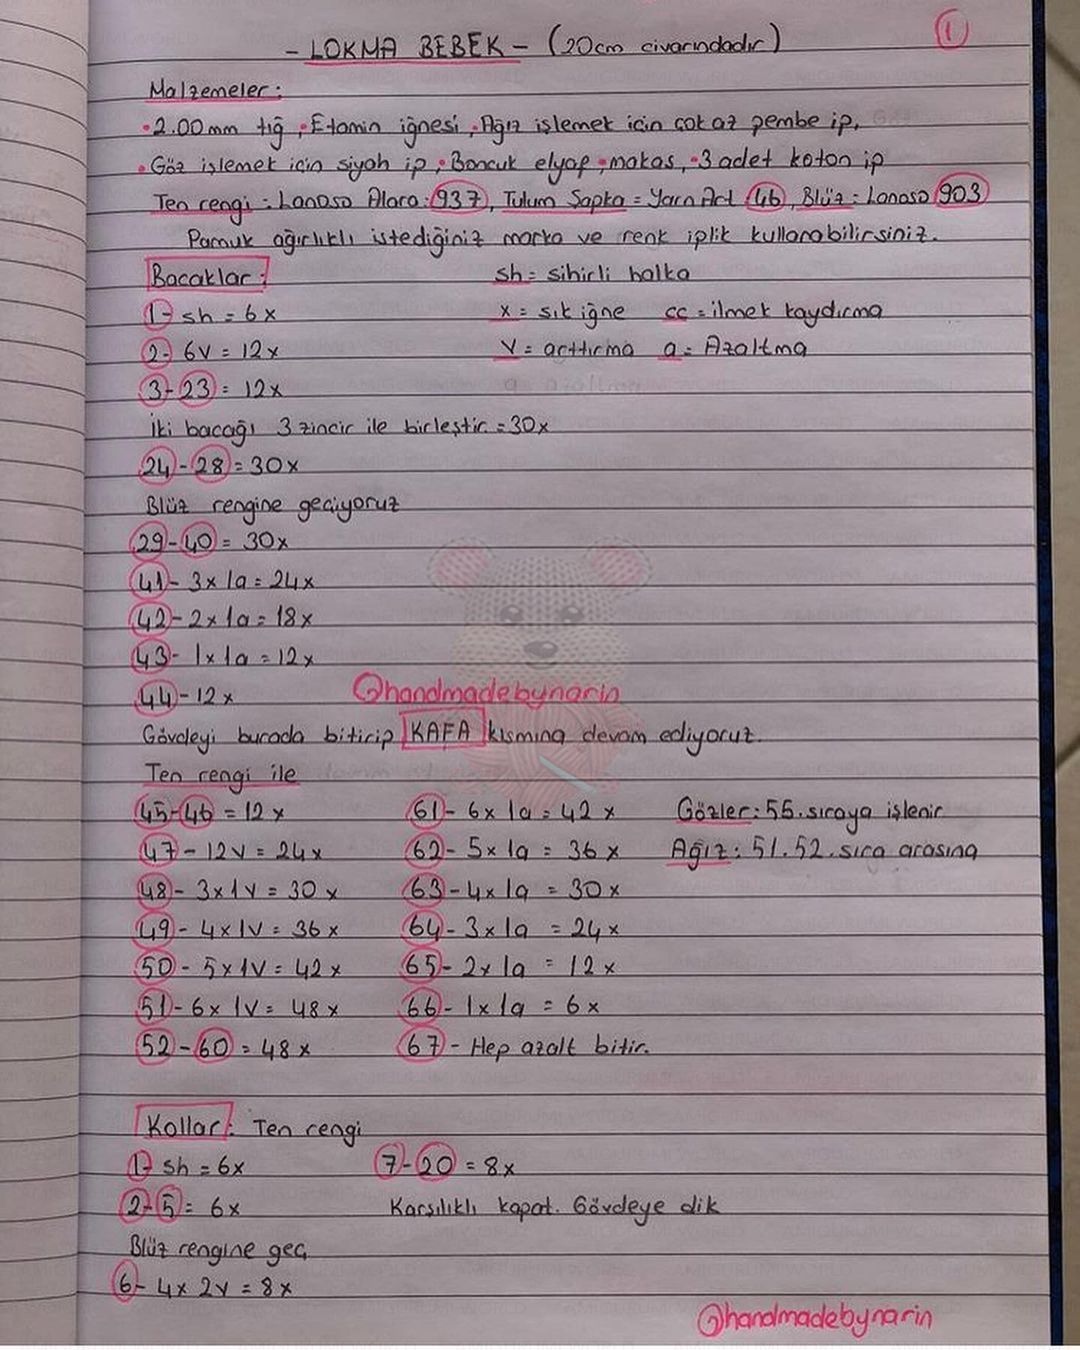 1
- LOKMA BEBEK - (20cm civarındadır)
Malzemeler:
• 2.00mm tığ • Etamin iğnesi • Ağız işlemek için çok az pembe ip,
• Göz işlemek için siyah ip, • Boncuk elyaf • makas, • 3 adet koton ip
Ten rengi = Lanoso Alara: 937, Tulum Şapka = Yarn Art 46, Blüz: Lanoso 903
Pamuk ağırlıklı istediğiniz marka ve renk iplik kullanabilirsiniz.
Bacaklar: sh = sihirli halka
1- sh = 6x x = sık iğne cc = ilmek kaydırma
2- 6v = 12x V = arttırma a = Azaltma
3-23 = 12x
İki bacağı 3 zincir ile birleştir. = 30x
24-28 = 30x
Blüz rengine geçiyoruz
29-40 = 30x
41- 3x 1a = 24x
42- 2x 1a = 18x
43- 1x 1a = 12x
44- 12x
@handmadebynarin
Gövdeyi burada bitirip KAFA kısmına devam ediyoruz.
Ten rengi ile
45-46 = 12x 61- 6x 1a = 42x Gözler: 55. sıraya işlenir
47- 12v = 24x 62- 5x 1a = 36x Ağız: 51. 52. sıra arasına
48- 3x1v = 30x 63- 4x 1a = 30x
49- 4x1v = 36x 64- 3x 1a = 24x
50- 5x1v = 42x 65- 2x 1a = 12x
51- 6x 1v = 48x 66- 1x 1a = 6x
52-60 = 48x 67- Hep azalt bitir.
Kollar: Ten rengi
1- sh = 6x 7-20 = 8x
2-5 = 6x Karşılıklı kapat. Gövdeye dik
Blüz rengine geç
6- 4x 2v = 8x
@handmadebynarin